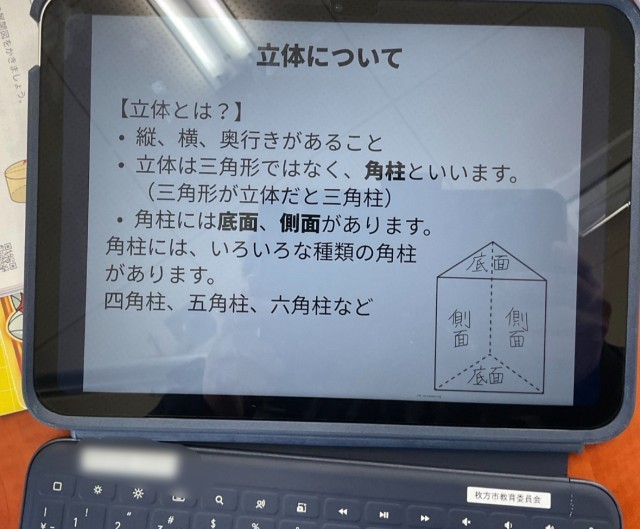 立体について
【立体とは？】
・縦、横、奥行きがあること
・立体は三角形ではなく、角柱といいます。
（三角形が立体だと三角柱）
・角柱には底面、側面があります。
角柱には、いろいろな種類の角柱
があります。
四角柱、五角柱、六角柱など
底面
側面
側面
底面
枚方市教育委員会